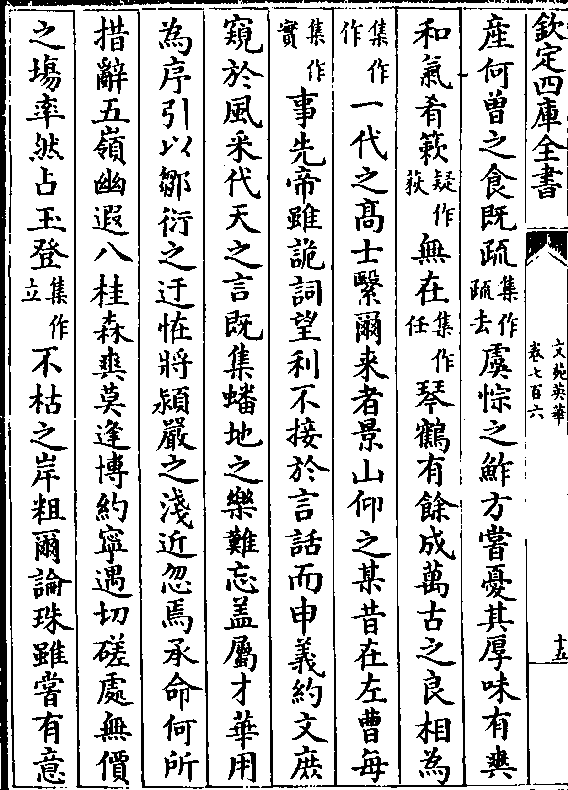 欽定四庫全書
文苑英華
卷七百六
十五
産何曾之食既疏集作疏去虞悰之鮓方嘗憂其厚味有爽
和氣肴簌疑作蔌無在集作任琴鶴有餘成萬古之良相為
集作作一代之髙士繄爾来者景山仰之某昔在左曹每
集作實事先帝雖詭詞望利不接於言話而申義約文庶
窺於風采代天之言既集蟠地之樂難忘盖屬才華用
為序引以鄒衍之迂恠將潁嚴之淺近忽焉承命何所
措辭五嶺幽遐八桂森爽莫逢博約寧遇切磋處無價
之場率然占玉登集作立不枯之岸粗爾論珠雖嘗有意